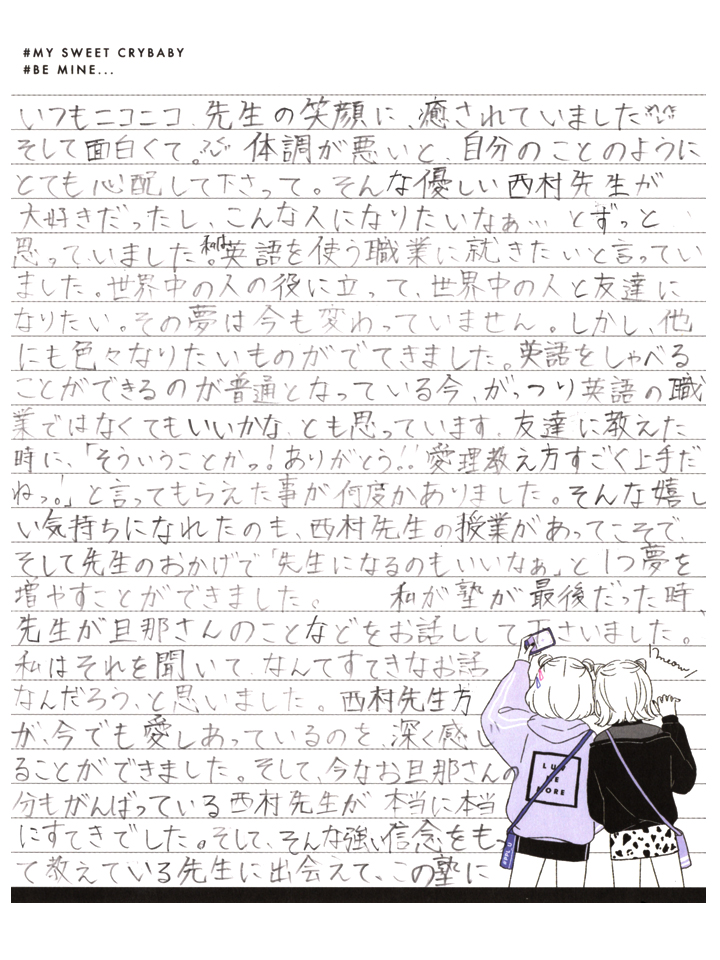 #MY SWEET CRYBABY
#BE MINE...
いつもニコニコ、先生の笑顔に、癒されていました
そして面白くて。体調が悪いと、自分のことのように
とても心配して下さって。そんな優しい西村先生が
大好きだったし、こんな人になりたいなぁ…とずっと
思っていました。私は英語を使う職業に就きたいと言ってい
ました。世界中の人の役に立って、世界中の人と友達に
なりたい。その夢は今も変わっていません。しかし、他
にも色々なりたいものがでてきました。英語をしゃべる
ことができるのが普通となっている今、がっつり英語の職
業ではなくてもいいかな とも思っています。友達に教えた
時に、「そういうことかっ!ありがとう!!愛理教え方すごく上手だ
ねっ!」と言ってもらえた事が何度かありました。そんな嬉し
い気持ちになれたのも、西村先生の授業があってこそで、
そして先生のおかげで「先生になるのもいいなぁ」と1つ夢を
増やすことができました。 私が塾が最後だった時、
先生が旦那さんのことなどをお話しして下さいました。
私はそれを聞いて、なんてすてきなお話
なんだろう、と思いました。西村先生方
が、今でも愛しあっているのを、深く感じ
ることができました。そして、今なお旦那さんの
分もがんばっている西村先生が 本当に本当
にすてきでした。そして、そんな強い信念をもっ
て教えている先生に出会えて、この塾に
meow